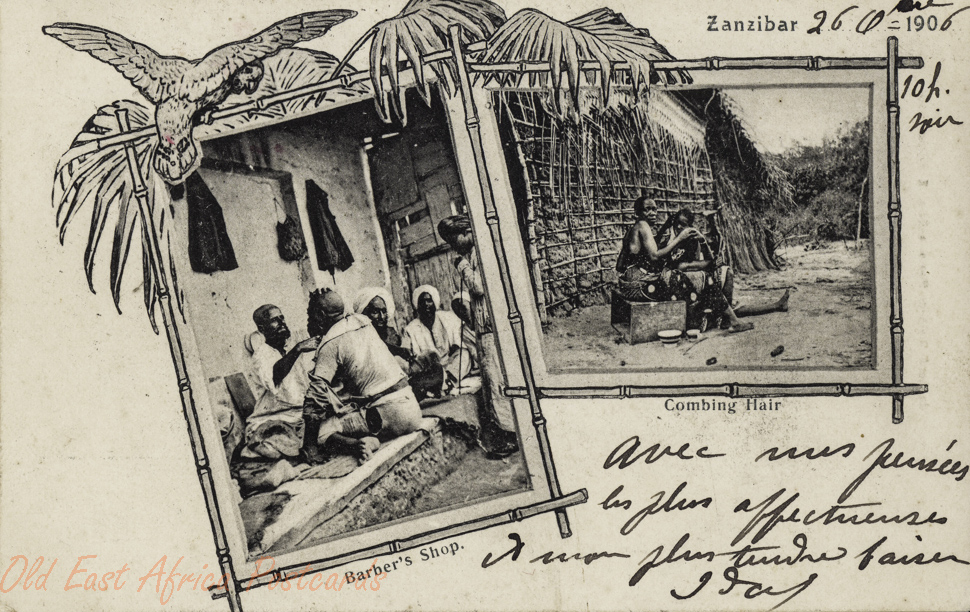 Zanzibar 26 8bre 1906
10h.
soir
Combing Hair
Avec mes pensées
les plus affectueuses
& mon plus tendre baiser
Barber's Shop.
Old East Africa Postcards